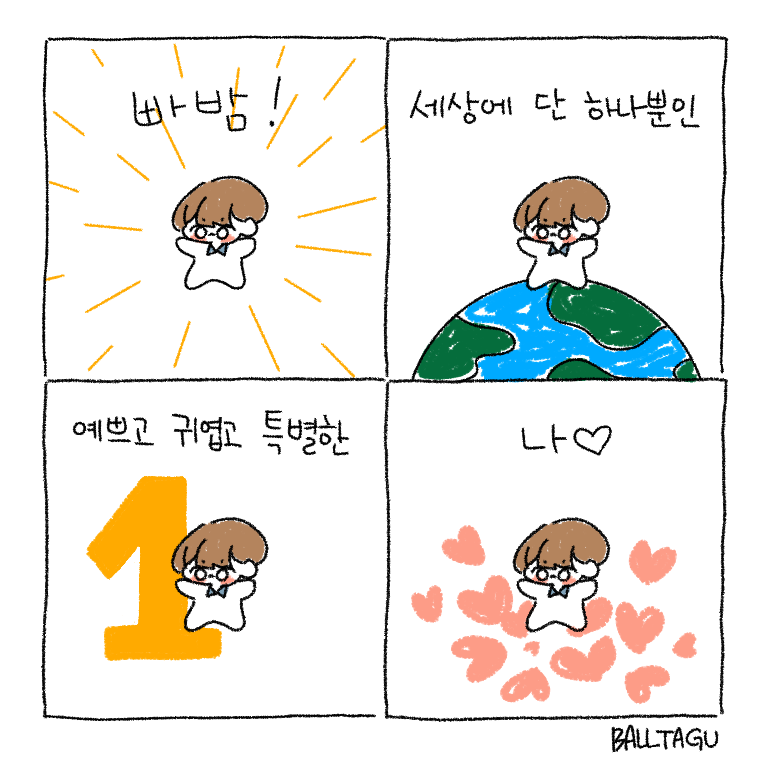 빠밤!
세상에 단 하나뿐인
예쁘고 귀엽고 특별한
1
나♡
BALLTAGU